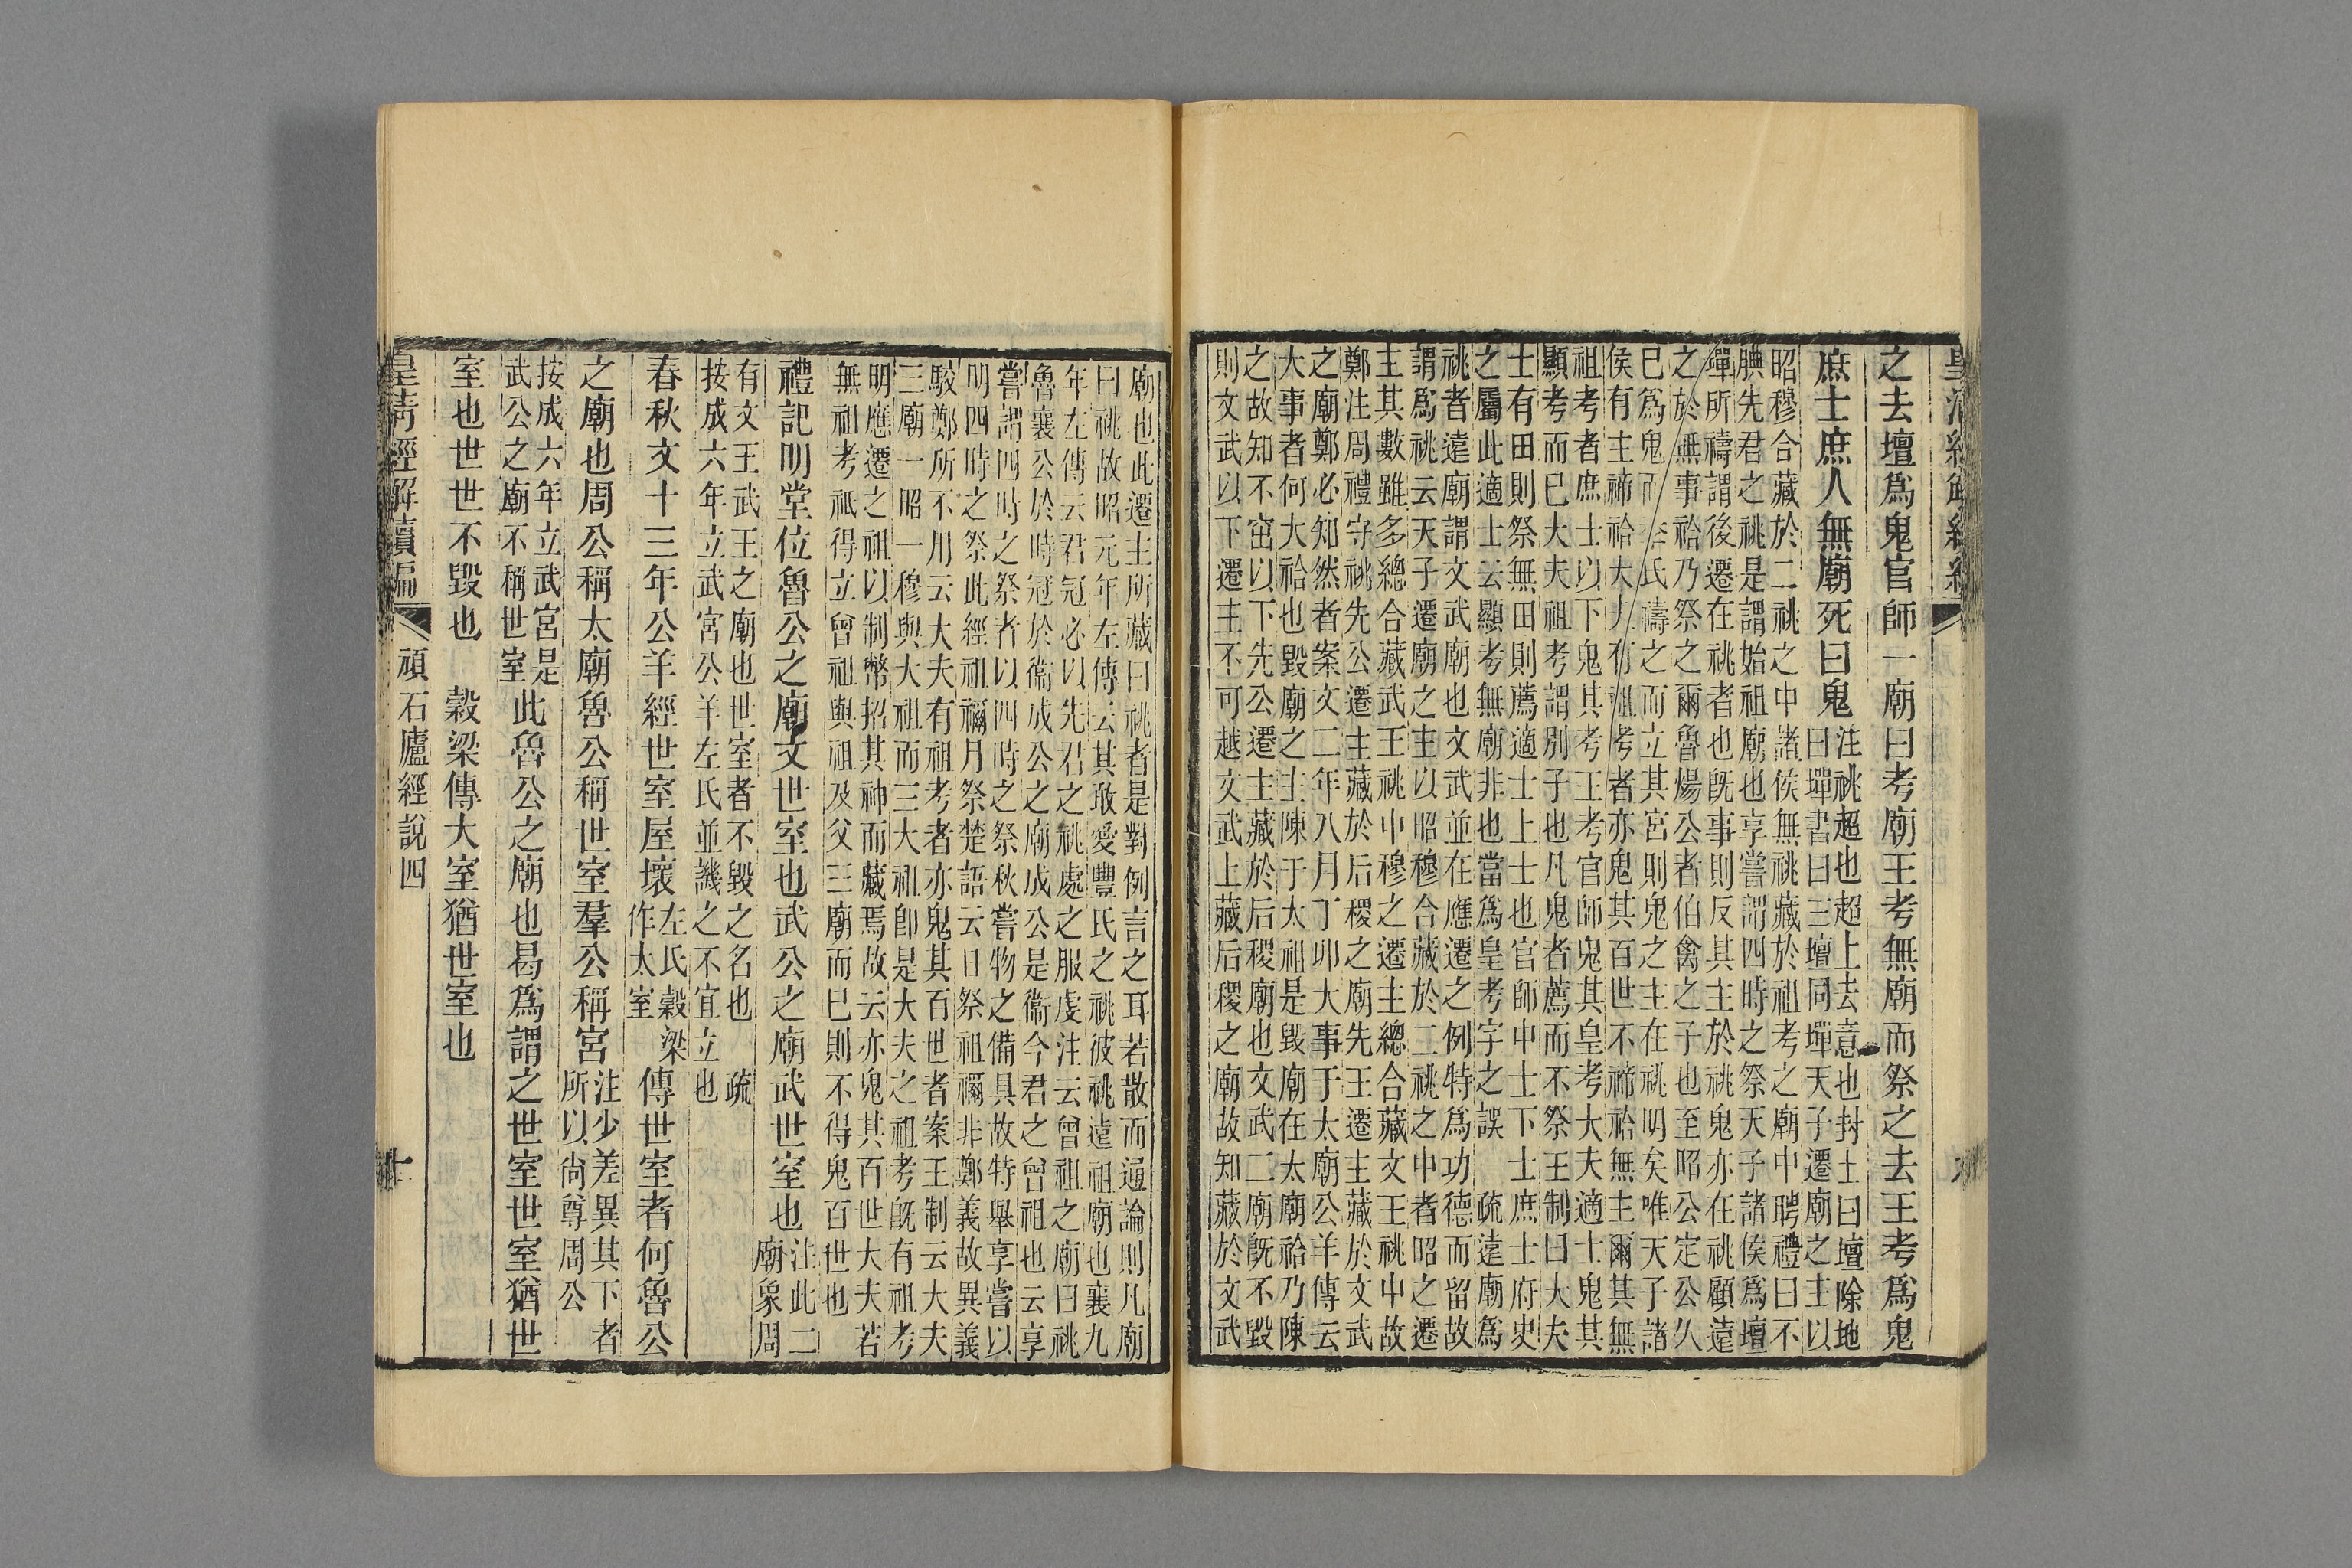 之去壇爲鬼官師一廟曰考廟王考無廟而祭之去王考爲鬼
庶士庶人無廟死曰鬼
注祧超也超上去意也封土曰壇除地
曰墠書曰三壇同墠天子遷廟之主以
昭穆合藏於二祧之中諸侯無祧藏於祖考之廟中聘禮曰不
腆先君之祧是謂始祖廟也享嘗謂四時之祭天子諸侯爲壇
墠所禱謂後遷在祧者也旣事則反其主於祧鬼亦在祧顧遠
之於無事祫乃祭之爾魯煬公者伯禽之子也至昭公定公久
巳爲鬼而季氏禱之而立其宮則鬼之主在祧明矣唯天子諸
侯有主禘祫大夫有祖考者亦鬼其百世不禘祫無主爾其無
祖考者庶士以下鬼其考王考官師鬼其皇考大夫適士鬼其
顯考而巳大夫祖考謂別子也凡鬼者薦而不祭王制曰大夫
士有田則祭無田則薦適士上士也官師中士下士庶士府史
之屬此適士云顯考無廟非也當爲皇考字之誤　疏遠廟爲
祧者遠廟謂文武廟也文武並在應遷之例特爲功德而留故
謂爲祧云天子遷廟之主以昭穆合藏於二祧之中者昭之遷
主其數雖多總合藏武王祧中穆之遷主總合藏文王祧中故
鄭注周禮守祧先公遷主藏於后稷之廟先王遷主藏於文武
之廟鄭必知然者案文二年八月丁卯大事于太廟公羊傳云
大事者何大祫也毀廟之主陳于太祖是毀廟在太廟祫乃陳
之故知不窋以下先公遷主藏於后稷廟也文武二廟旣不毀
則文武以下遷主不可越文武上藏后稷之廟故知藏於文武
廟也此遷主所藏曰祧者是對例言之耳若散而通論則凡廟
曰祧故昭元年左傳云其敢愛豐氏之祧彼祧遠祖廟也襄九
年左傳云君冠必以先君之祧處之服虔注云曾祖之廟曰祧
魯襄公於時冠於衞成公之廟成公是衞今君之曾祖也云享
嘗謂四時之祭者以四時之祭秋嘗物之備具故特舉享嘗以
明四時之祭此經祖禰月祭楚語云日祭祖禰非鄭義故異義
駮鄭所不用云大夫有祖考者亦鬼其百世者案王制云大夫
三廟一昭一穆與大祖而三大祖卽是大夫之祖考旣有祖考
明應遷之祖以制幣招其神而藏焉故云亦鬼其百世大夫若
無祖考祇得立曾祖與祖及父三廟而巳則不得鬼百世也
禮記明堂位魯公之廟文世室也武公之廟武世室也
注此二
廟象周
有文王武王之廟也世室者不毀之名也　疏
按成六年立武宮公羊左氏並譏之不宜立也
春秋文十三年公羊經世室屋壞
左氏穀梁
作太室
傳世室者何魯公
之廟也周公稱太廟魯公稱世室羣公稱宮
注少差異其下者
所以尚尊周公
按成六年立武宮是
武公之廟不稱世室
此魯公之廟也曷爲謂之世室世室猶世
室也世世不毀也　穀梁傳大室猶世室也
皇清經解續編　頑石廬經說四　十